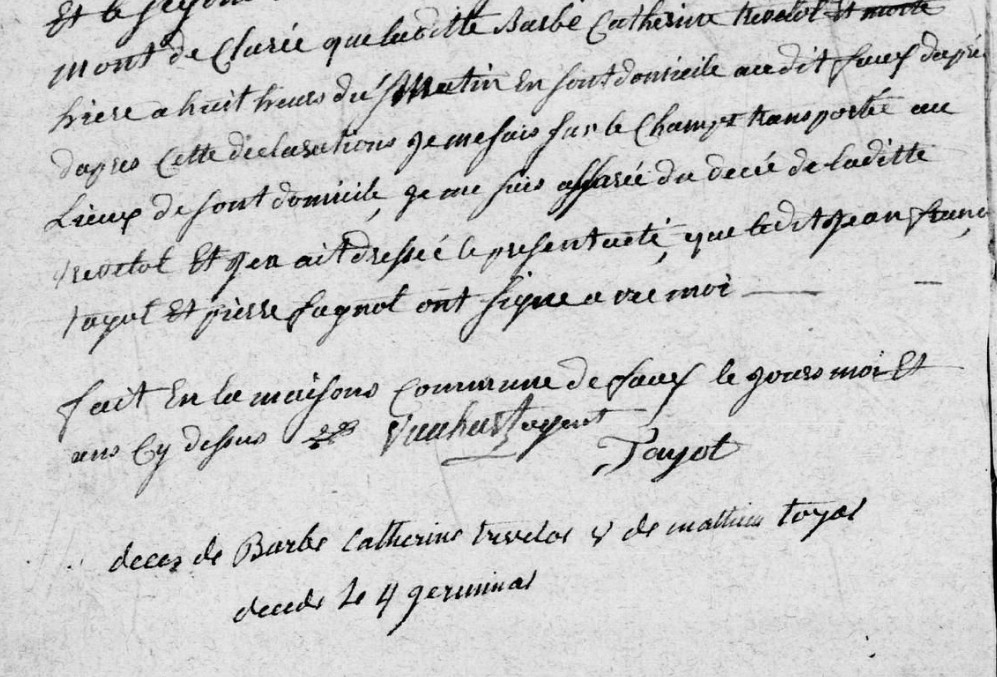 Et le
mont de Clarée que laditte Barbe Catherine trevelot Et morte
hiere a huit heurs du Matin En sont domicile audit faux dapré
dapres Cette declarations Je me suis sur le Champt transportée au
Lieux de sont domicile, Je me suis assurée du decé de laditte
trevelot Et J'en ait dressée le present acte, que ledit Jean franc
tayot Et pierre fagnot ont signe avec moi
fait En la maisons Commune de faux le jours moi Et
ans Cy dessus agent
Tayot
decez de Barbe Catherine trevelot v de mathieu toyat
decede le 4 germinal